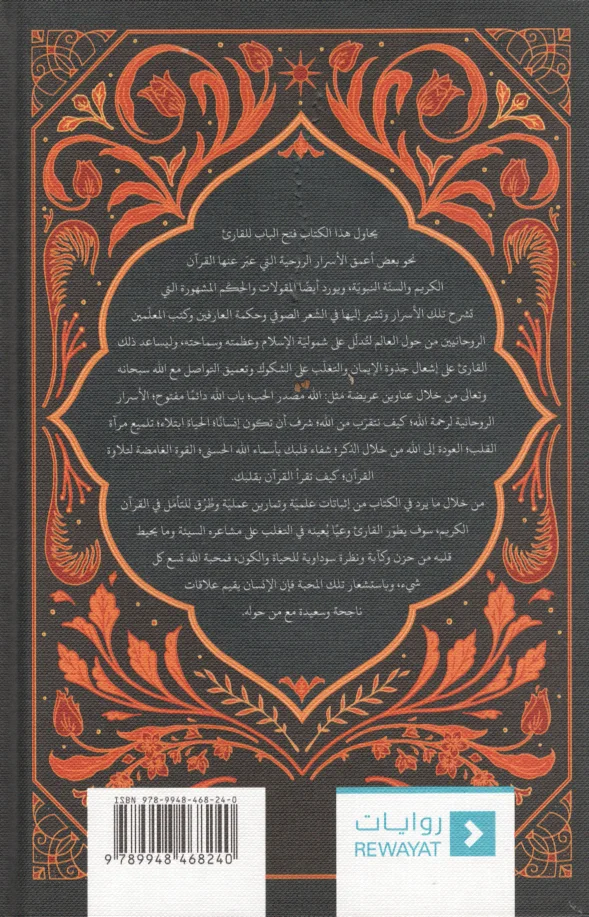 يحاول هذا الكتاب فتح الباب للقارئ
نحو بعض أعمق الأسرار الروحية التي عبّر عنها القرآن
الكريم والسنّة النبويّة، ويورد أيضًا المقولات والحِكَم المشهورة التي
تشرح تلك الأسرار وتشير إليها في الشعر الصوفي وحكمة العارفين وكتب المعلّمين
الروحانيين من حول العالم لتُدلّل على شموليّة الإسلام وعظمته وسماحته، وليساعد ذلك
القارئ على إشعال جذوة الإيمان والتغلّب على الشكوك وتعميق التواصل مع الله سبحانه
وتعالى من خلال عناوين عريضة مثل: الله مصدر الحب؛ باب الله دائمًا مفتوح؛ الأسرار
الروحانية لرحمة الله؛ كيف نتقرّب من الله؛ شرف أن تكون إنسانًا؛ الحياة ابتلاء؛ تلميع مرآة
القلب؛ العودة إلى الله من خلال الذكر؛ شفاء قلبك بأسماء الله الحسنى؛ القوة الغامضة لتلاوة
القرآن؛ كيف تقرأ القرآن بقلبك.
من خلال ما يرد في الكتاب من إثباتات علميّة وتمارين عمليّة وطُرُق للتأمّل في القرآن
الكريم، سوف يطوّر القارئ وعيًا يُعينه في التغلب على مشاعره السيئة وما يحيط
قلبه من حزن وكآبة ونظرة سوداوية للحياة والكون، فمحبة الله تسع كل
شيء، وباستشعار تلك المحبة فإن الإنسان يقيم علاقات
ناجحة وسعيدة مع من حوله.
ISBN 978-9948-468-24-0
9 789948 468240
روايات
REWAYAT